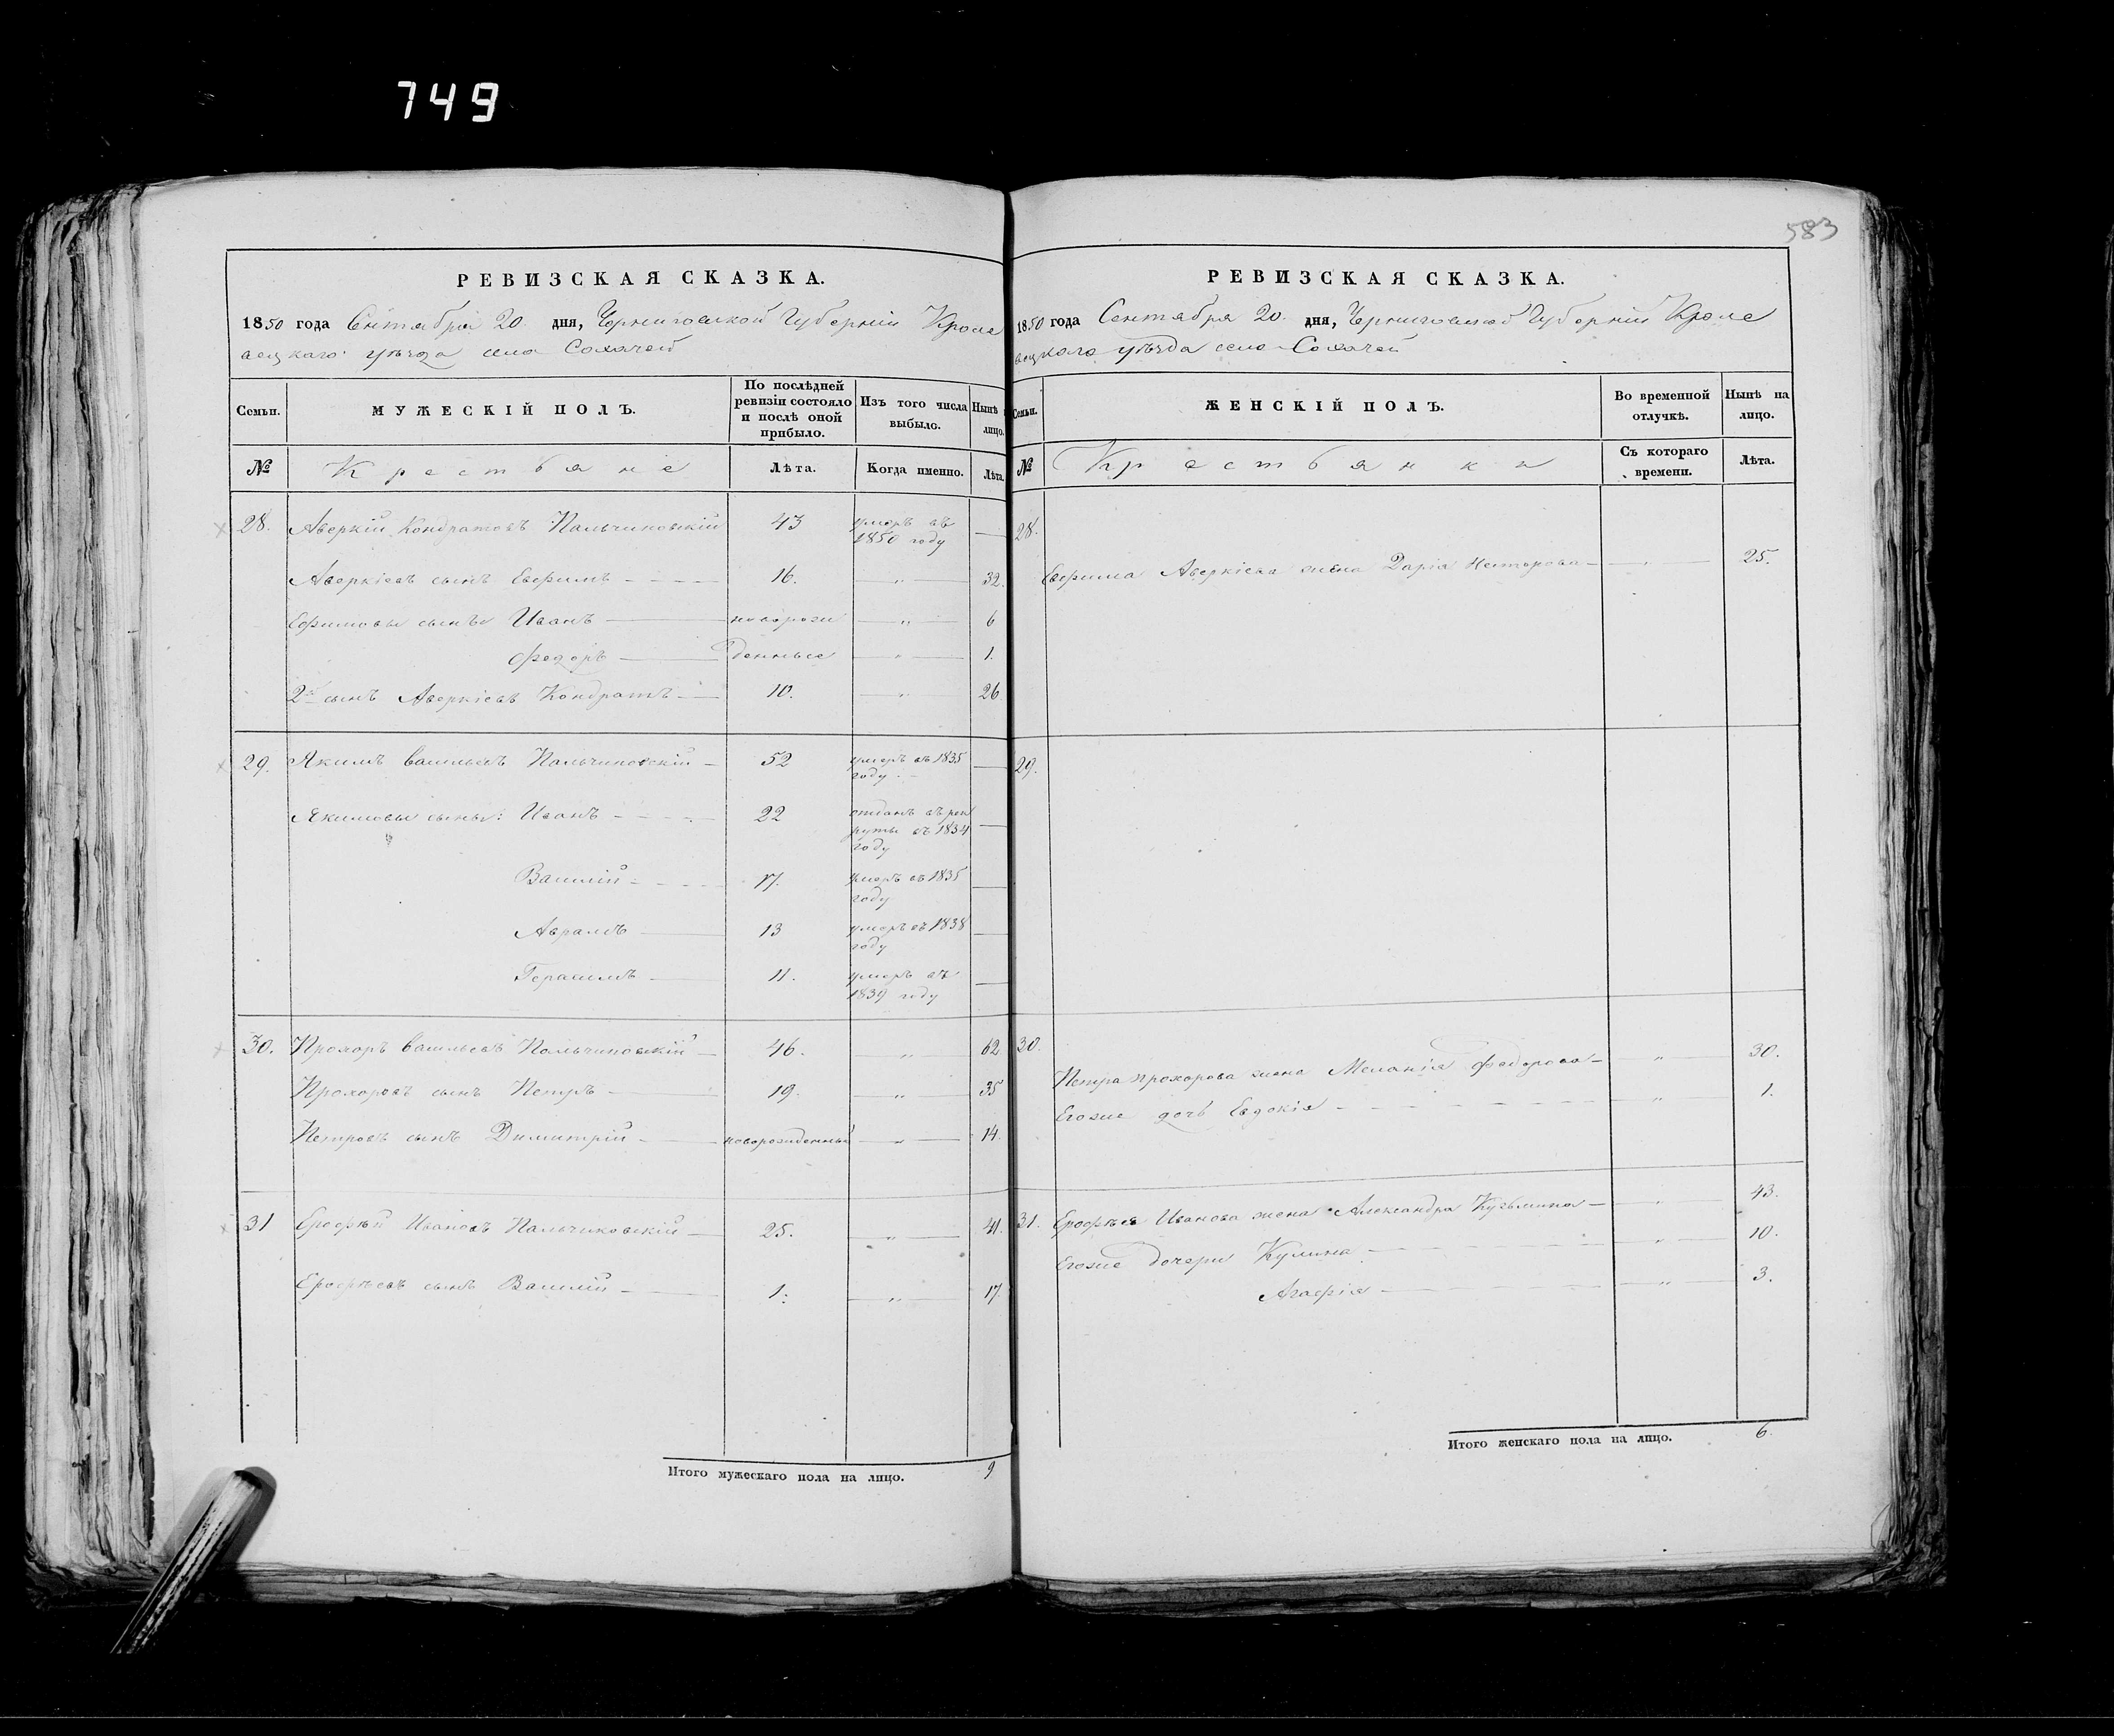 749
583
РЕВИЗСКАЯ СКАЗКА.
1850 года Сентября 20 дня, Черниговской Губерніи Кроле
вецкаго уѣзда села Сохачей
Семьи.
МУЖЕСКІЙ ПОЛЪ.
По послѣдней ревизіи состояло и послѣ оной прибыло.
Изъ того числа выбыло.
Нынѣ лицо.
№
Крестьяне
Лѣта.
Когда именно.
Лѣта.
28. Аверкій Кондратовъ Пальчиковскій 43 умеръ въ
1850 году —
Аверкіевъ сынъ Евфимъ 16. „ 32.
Ефимовы сыны Иванъ новорож „ 6
Федоръ денные „ 1.
2й сынъ Аверкіевъ Кондратъ 10. „ 26
29. Якимъ Васильевъ Пальчиковскій 52 умеръ въ 1835
году —
Якимовы сыны: Иванъ 22 отданъ въ рек
руты въ 1834
году —
Василій 17. умеръ въ 1835
году —
Аврамъ 13 умеръ въ 1838
году —
Герасимъ 11. умеръ въ
1839 году —
30. Прохоръ Васильевъ Пальчиковскій 46. „ 62
Прохоровъ сынъ Петръ 19. „ 35
Петровъ сынъ Димитрій новорожденный „ 14.
31 Ерофѣй Ивановъ Пальчиковскій 25. „ 41.
Ерофѣевъ сынъ Василій 1. „ 17
Итого мужескаго пола на лицо. 9
РЕВИЗСКАЯ СКАЗКА.
1850 года Сентября 20. дня, Черниговской Губерніи Кроле
вецкаго уѣзда села Сохачей
Семьи.
ЖЕНСКІЙ ПОЛЪ.
Во временной отлучкѣ.
Нынѣ на лицо.
№
Крестьянки
Съ котораго времени.
Лѣта.
28.
Евфима Аверкіева жена Дарія Нестерова „ 25.
29.
30.
Петра Прохорова жена Меланія Федорова „ 30.
Егоже дочь Евдокія „ 1.
31. Ерофѣя Иванова жена Александра Кузьмина „ 43.
Егоже дочери Кулина „ 10.
Агафія „ 3.
Итого женскаго пола на лицо. 6.